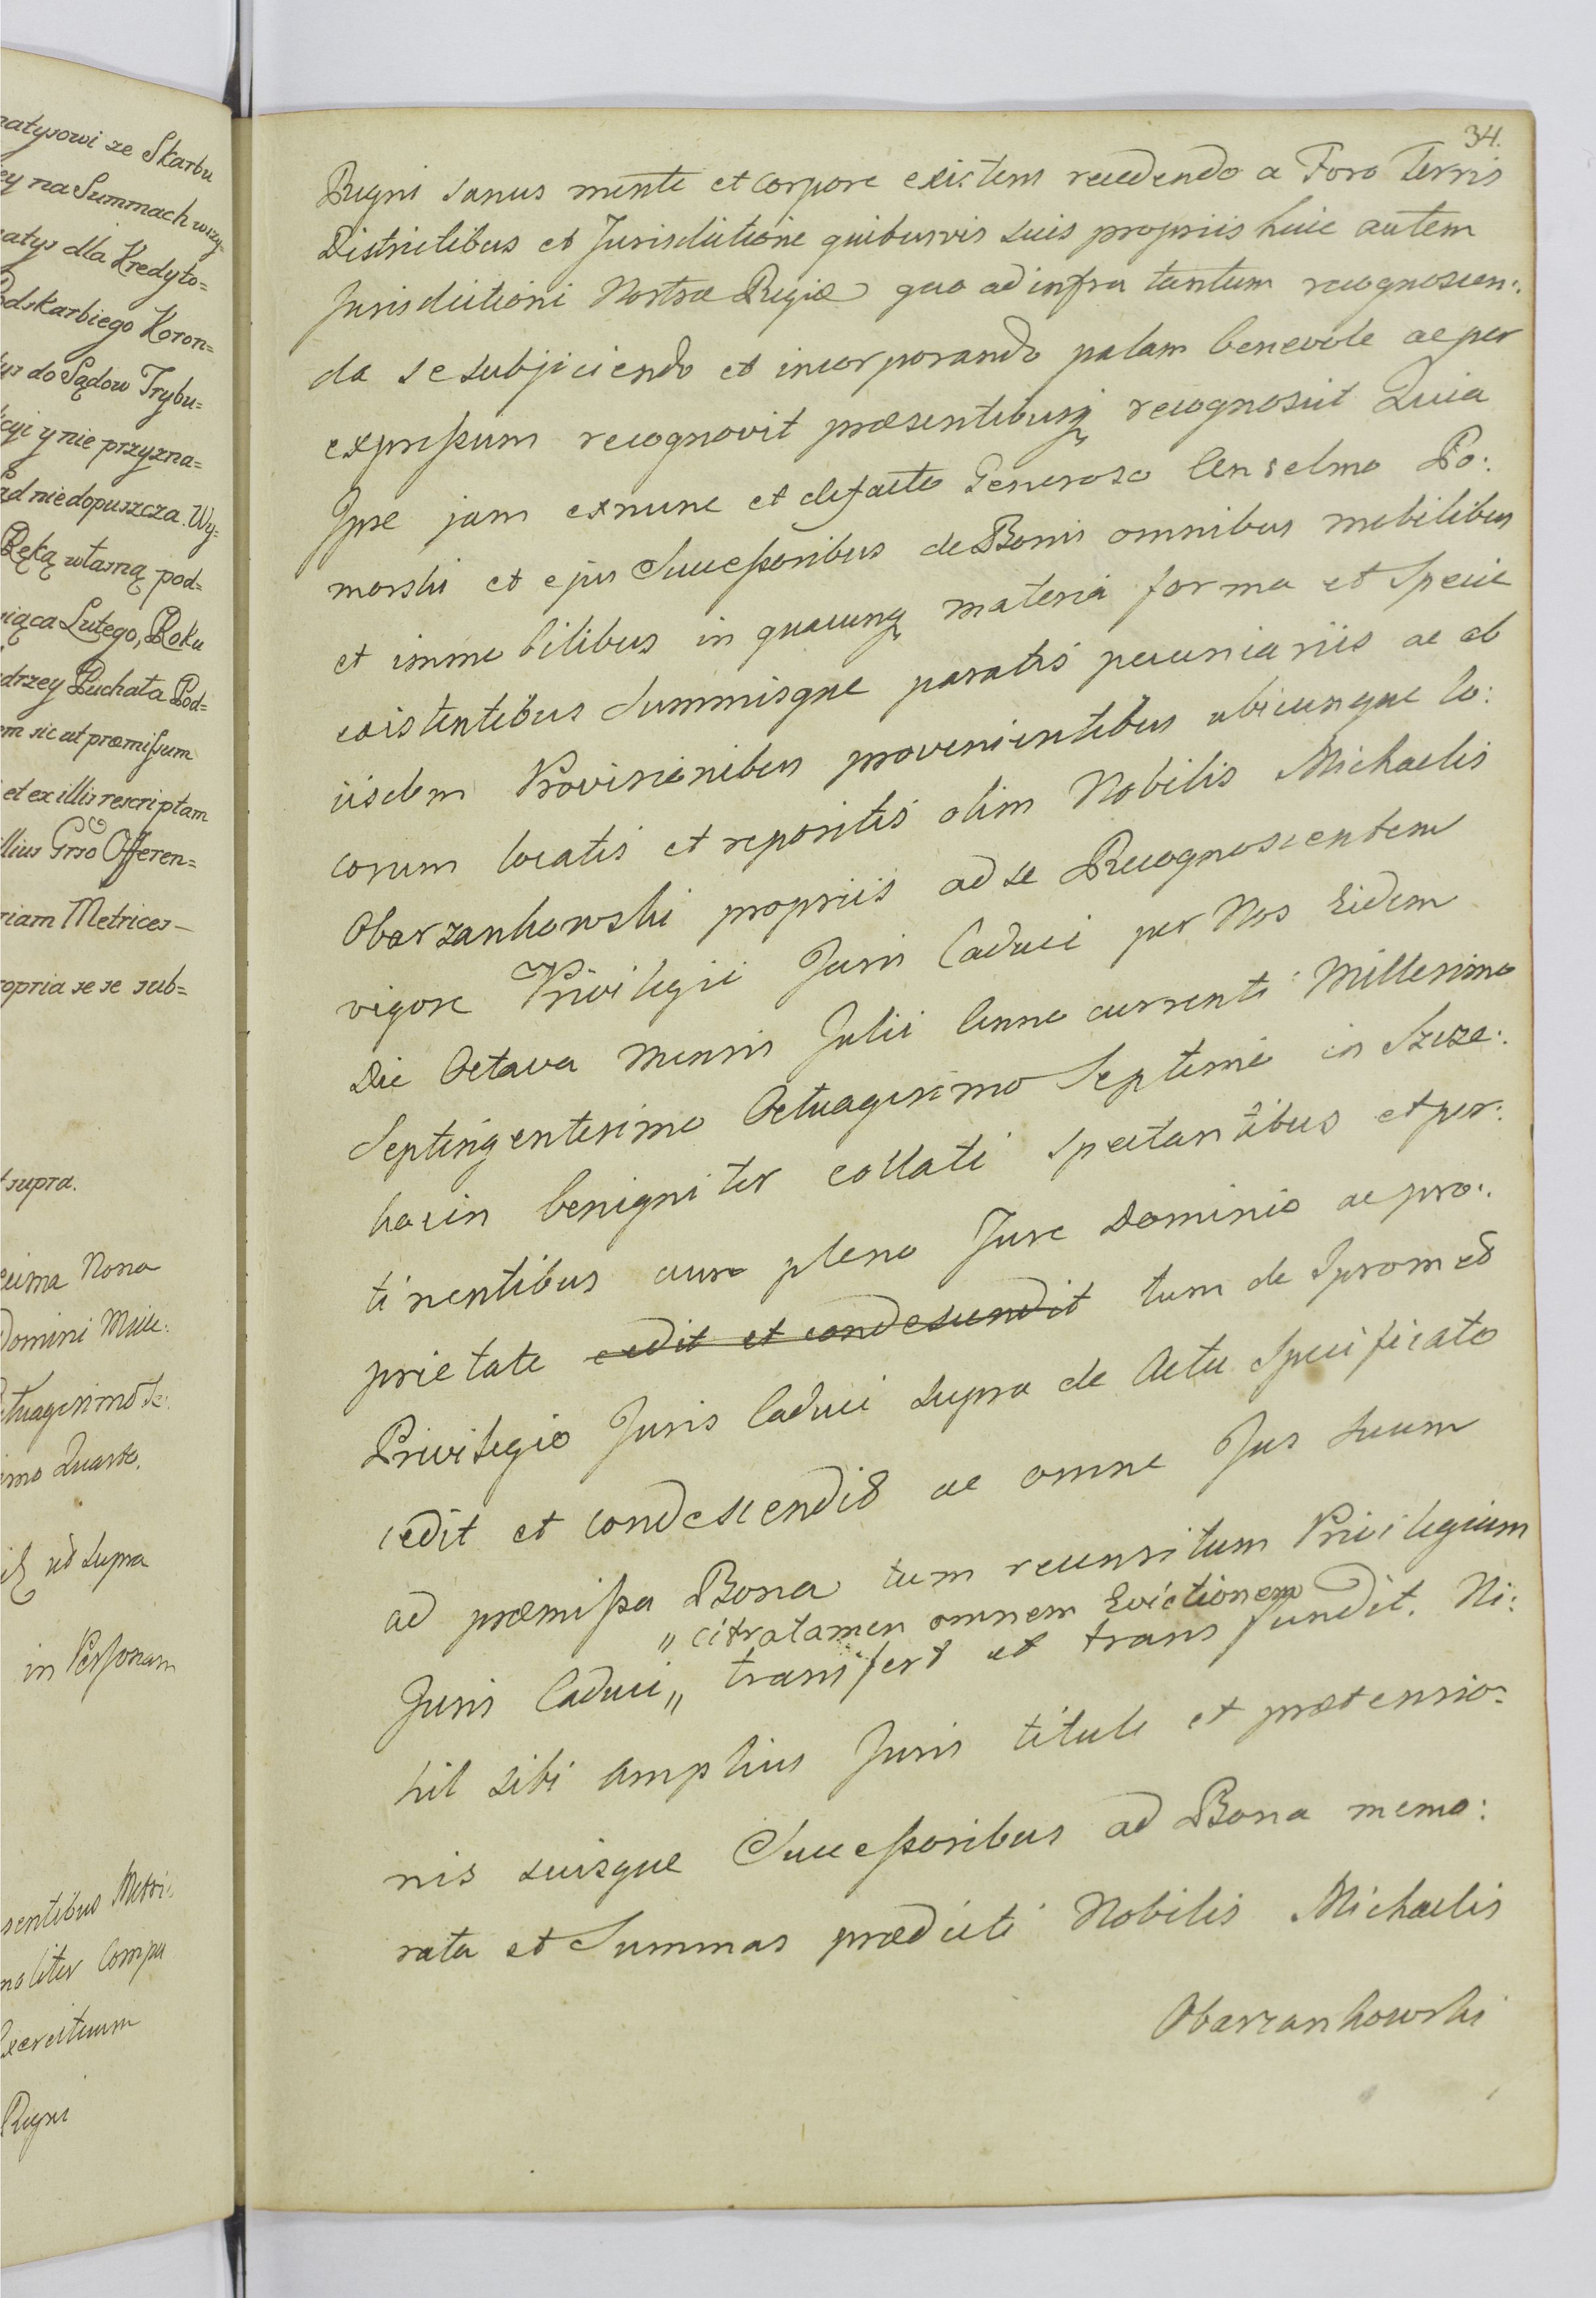 natysowi ze Skarbu
ey na Summach wszy=
catys dla Kredyto=
Podskarbiego Koron=
tys do Sądow Trybu=
kcyi y nie przyzna=
ad niedopuszcza. Wy=
Ręką własną pod=
siąca Lutego, Roku
drzey Puchała Pod=
em sic ut præmissum
et ex illis rescriptam
illius Grso Offeren=
riam Metrices —
ropria se se sub=
t supra.
cima Nona
Domini Mille:
ctuagesimo Se:
imo Quarto.
ut supra
in Personam
sentibus Metri:
naliter Compa
Exercituum
Regni
34.
Regni sanus mente et corpore existens recedendo a Foro Terris
Districtibus et Jurisdictione quibusvis suis propriis huic autem
Jurisdictioni Nostræ Regiæ quo ad infra tantum recognoscen:
da se subjiciendo et incorporando palam benevole ac per
expressum recognovit præsentibusq recognoscit Quia
Ipse jam exnunc et defacto Generoso Anselmo Po:
morski et ejus Successoribus de Bonis omnibus mobilibus
et immobilibus in quacunq materia forma et Specie
existentibus Summisque paratis pecuniariis ac ab
iisdem Provisionibus provenientibus ubicunque lo:
corum locatis et repositis olim Nobilis Michaelis
Obarzankowski propriis ad se Recognoscentem
vigore Privilegii Juris Caduci per Nos Eidem
Die Octava Mensis Julii Anno currenti Millesimo
Septingentesimo Octuagesimo Septimo in Szcze:
kocin benigniter collati spectantibus et per:
tinentibus cum pleno Jure Dominio ac pro:
prietate cedit et condescendit tum de Ipsomet
Privilegio Juris Caduci supra de Actu Specificato
cedit et condescendit ac omne Jus suum
ad præmissa Bona tum recensitum Privilegium
„ citratamen omnem Evictionem
Juris Caduci „ transfert et transfundit. Ni:
hil sibi amplius Juris tituli et prætensio:
nis suisque Successoribus ad Bona memo:
rata et Summas prædicti Nobilis Michaelis
Obarzankowski